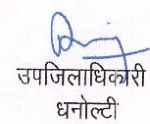 उपजिलाधिकारी
धनोल्टी